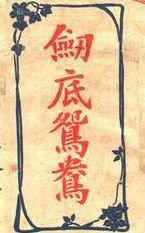 劒底鴛鴦